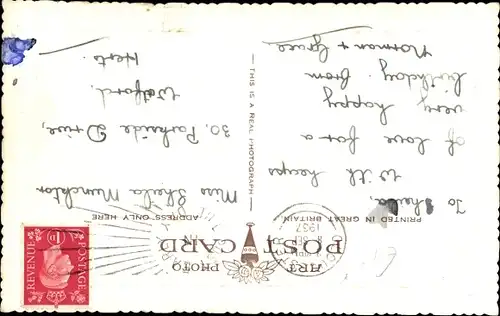 ART
POST CARD
PHOTO
PRINTED IN GREAT BRITAIN
ADDRESS ONLY HERE
THIS IS A REAL PHOTOGRAPH
1937
POSTAGE
REVENUE
1D
To Sheila
With heaps
of love for a
very happy
birthday. from
Norman + Grace
Miss Sheila
30, Parkside Drive,
Watford.
Herts.